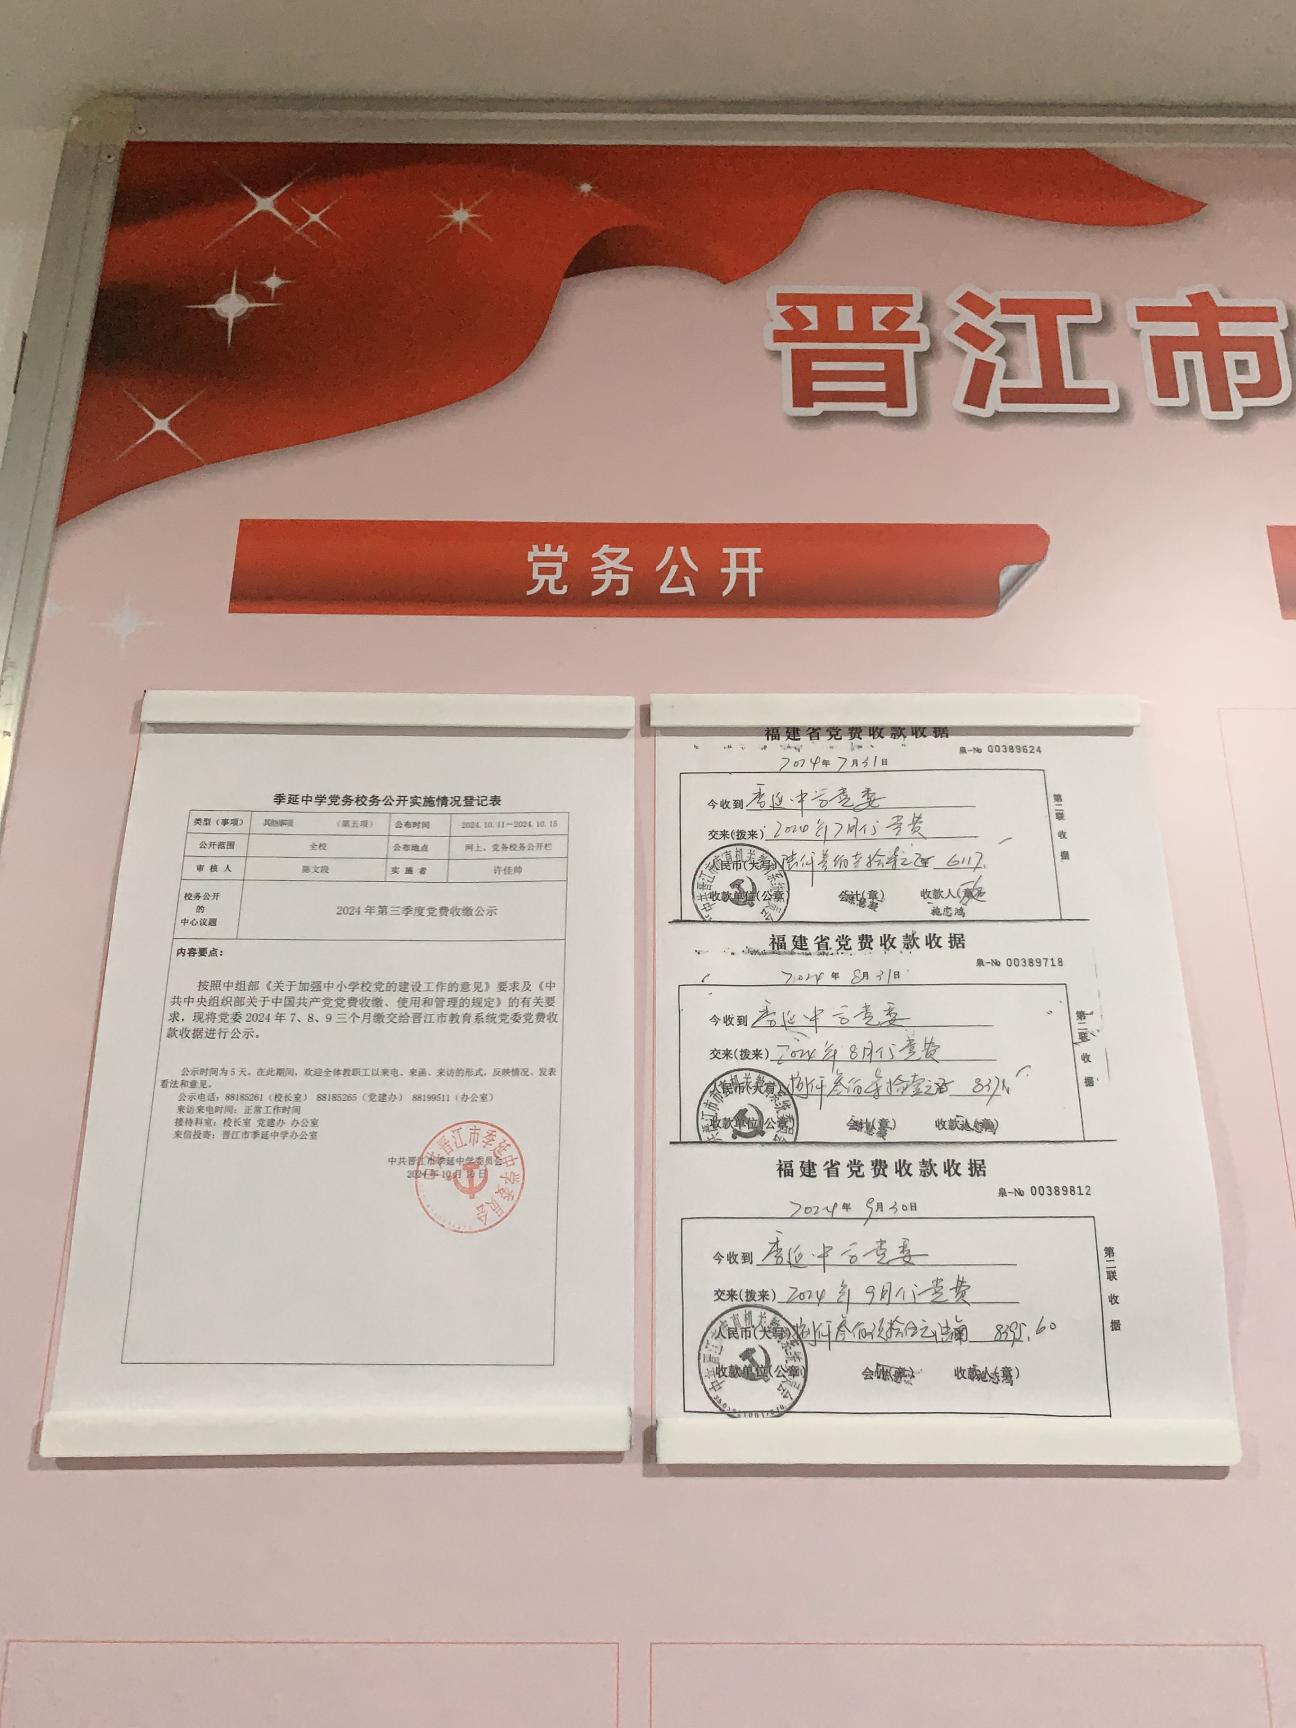 晋江市
党务公开
季延中学党务校务公开实施情况登记表
类型（事项） 其他事项 （第五项） 公布时间 2024.10.11－2024.10.15
公开范围 全校 公布地点 网上、党务校务公开栏
审核人 陈文段 实施者 许佳帅
校务公开
的
中心议题
2024年第三季度党费收缴公示
内容要点：
按照中组部《关于加强中小学校党的建设工作的意见》要求及《中
共中央组织部关于中国共产党党费收缴、使用和管理的规定》的有关要
求，现将党委2024年7、8、9三个月缴交给晋江市教育系统党委党费收
款收据进行公示。
公示时间为5天。在此期间，欢迎全体教职工以来电、来函、来访的形式，反映情况、发表
看法和意见。
公示电话：88185261（校长室） 88185265（党建办） 88199511（办公室）
来访来电时间：正常工作时间
接待科室：校长室 党建办 办公室
来信投寄：晋江市季延中学办公室
中共晋江市季延中学委员会
2024年10月10日
中共晋江市季延中学委员会
福建省党费收款收据
泉-No 00389624
2024年7月31日
今收到 季延中学党委
交来(拨来) 2024年7月份党费
人民币(大写) 6117.
收款单位(公章) 会计(章) 收款人(章)
施忠鸿
第二联 收据
福建省党费收款收据
泉-No 00389718
2024年8月31日
今收到 季延中学党委
交来(拨来) 2024年8月份党费
人民币(大写) 捌仟叁佰柒拾壹元正 8371.
收款单位(公章) 会计(章) 收款人(章)
第二联 收据
福建省党费收款收据
泉-No 00389812
2024年9月30日
今收到 季延中学党委
交来(拨来) 2024年9月份党费
人民币(大写) 捌仟叁佰玖拾伍元陆角 8395.60
收款单位(公章) 会计(章) 收款人(章)
第二联 收据